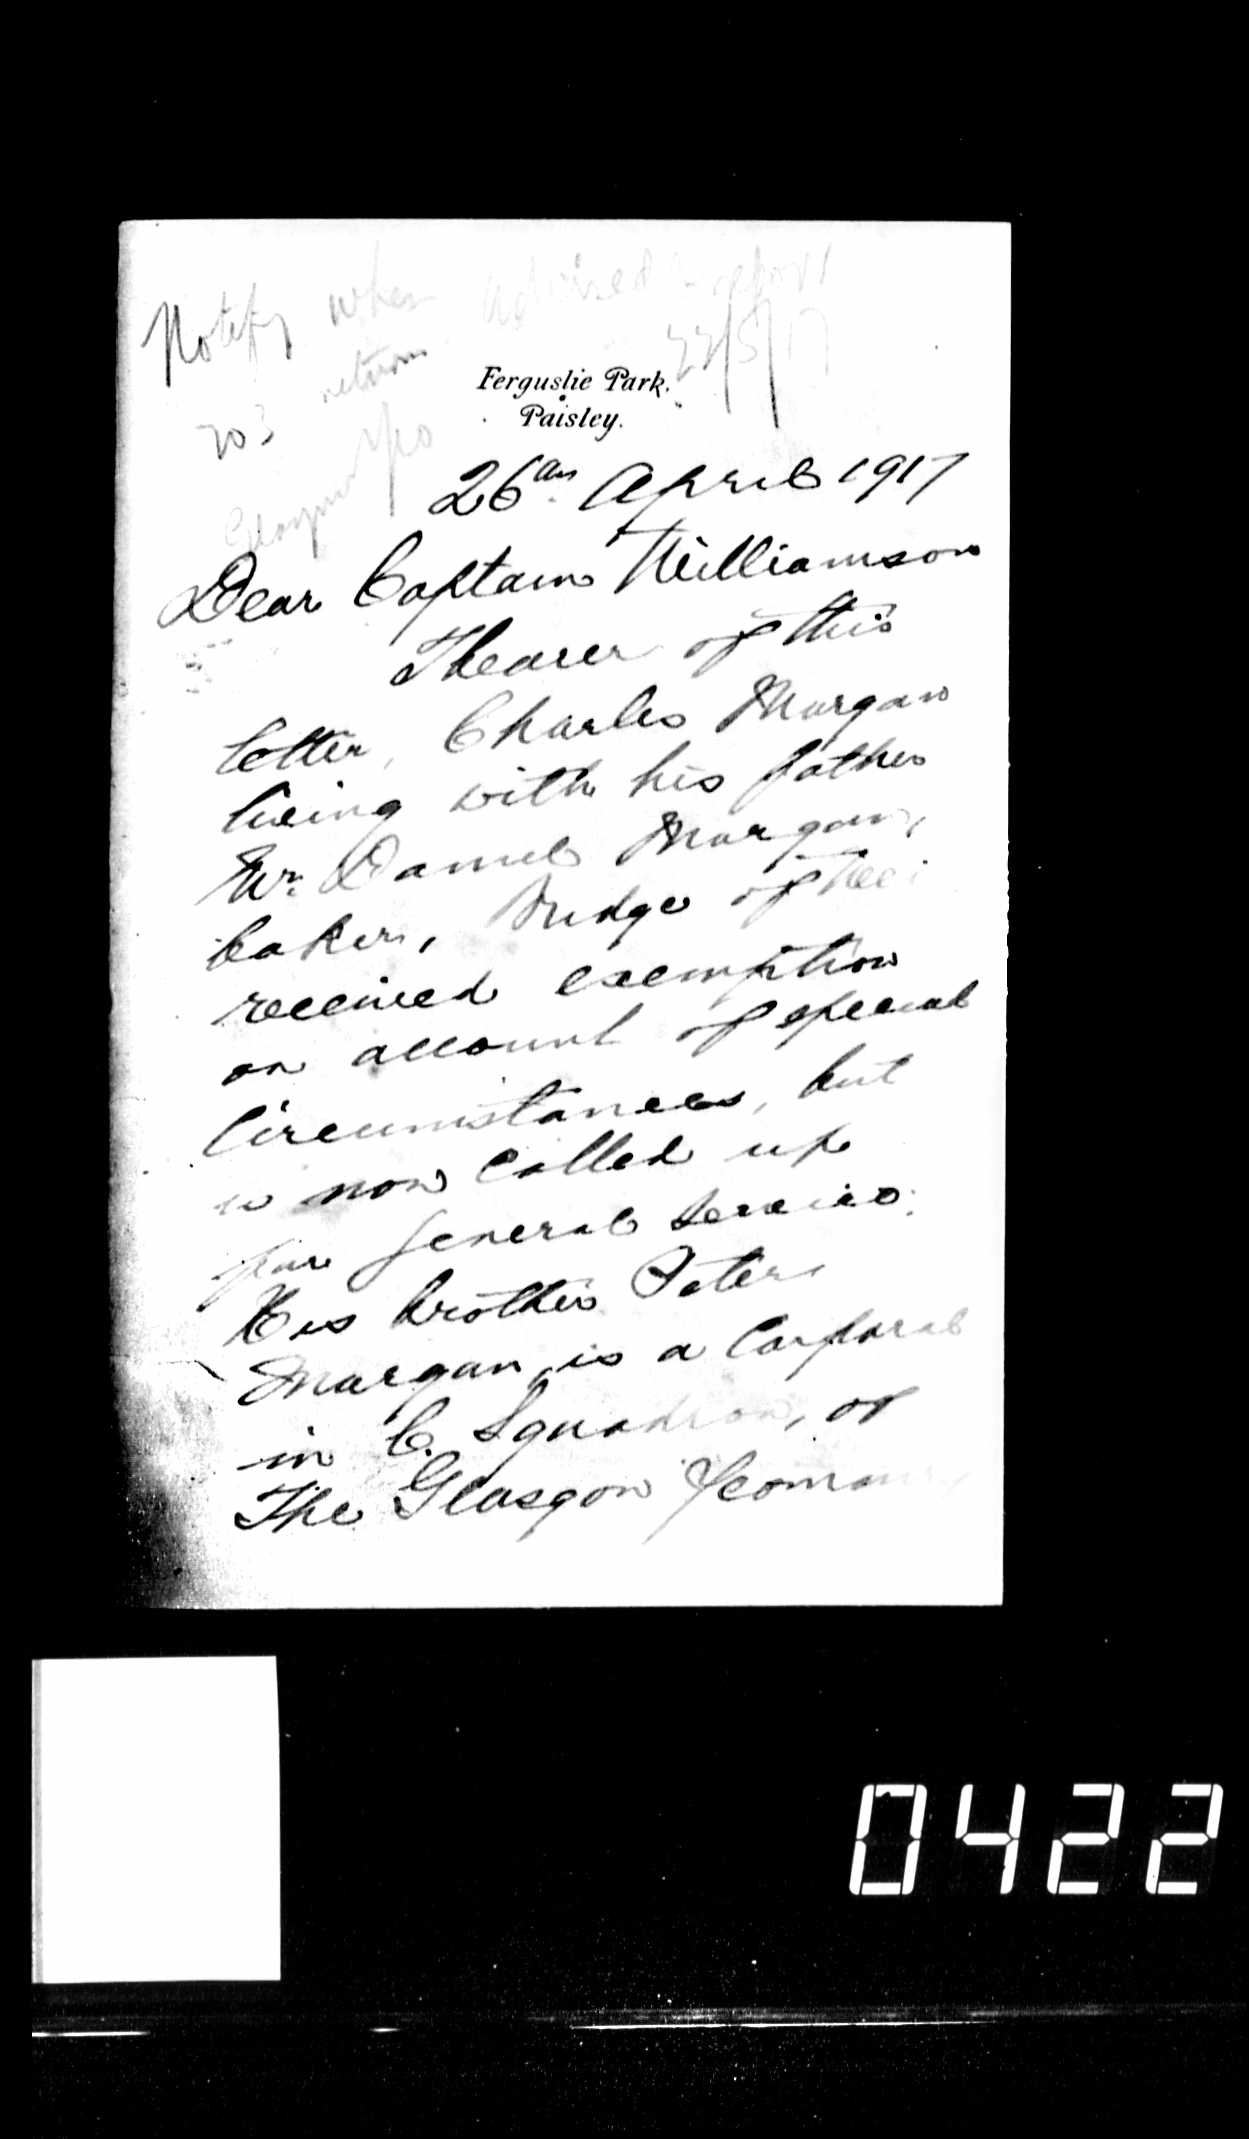 Notify when advised report
return 22/5/17
203
Glasgow Yeo
Ferguslie Park.
Paisley.
26th April 1917
Dear Captain Williamson
Bearer of this
letter, Charles Morgan
living with his father
Mr. Daniel Morgan,
baker, Bridge of Weir
received exemption
on account of special
circumstances, but
is now called up
for general service.
His brother Peter
Morgan, is a Corporal
in C. Squadron, of
The Glasgow Yeomanry
0422